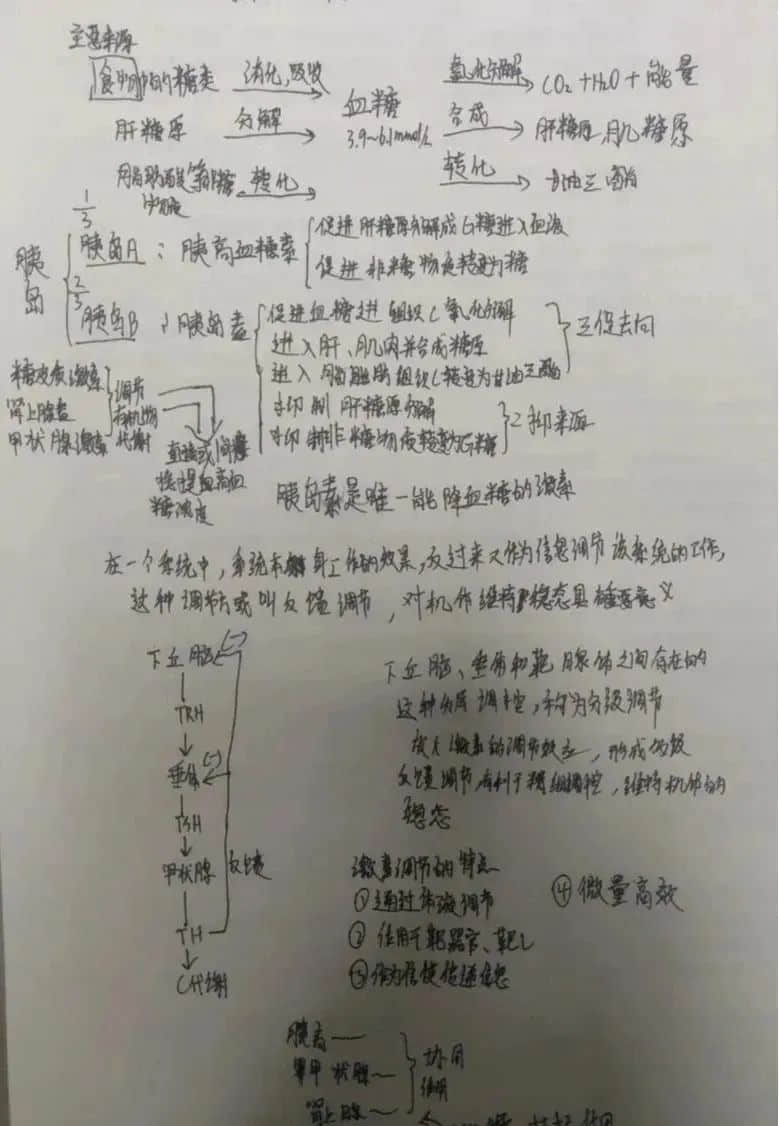 主要来源
食物中的糖类 消化,吸收 血糖 氧化分解 CO2+H2O+能量
肝糖原 分解 3.9~6.1mmol/L 合成 肝糖原,肌糖原
脂肪酸等非糖物质 转化 转化 甘油三酯
胰岛
1/3
胰岛A:胰高血糖素
促进肝糖原分解成G糖进入血液
促进非糖物质转变为糖
2/3
胰岛B:胰岛素
促进血糖进组织C氧化分解
进入肝、肌肉并合成糖原
进入脂肪组织C转变为甘油三酯
三促去向
抑制肝糖原分解
抑制非糖物质转变为G糖
2抑来源
糖皮质激素
肾上腺素
甲状腺激素
调节
有机物
代谢
直接或间接
提高血
糖浓度
胰岛素是唯一能降血糖的激素
在一个系统中,系统本身工作的效果,反过来又作为信息调节该系统的工作,
这种调节方式叫反馈调节,对机体维持稳态具重要意义
下丘脑 (-)
TRH
垂体 (-)
TSH
甲状腺 反馈
TH
C代谢
下丘脑、垂体和靶腺体之间存在的
这种分层调控,称为分级调节
放大激素的调节效应,形成多级
反馈调节,有利于精细调控,维持机体的
稳态
激素调节的特点
①通过体液调节
②作用于靶器官、靶C
③作为信使传递信息
④微量高效
胰高——
甲状腺—
肾上腺—
协同
作用